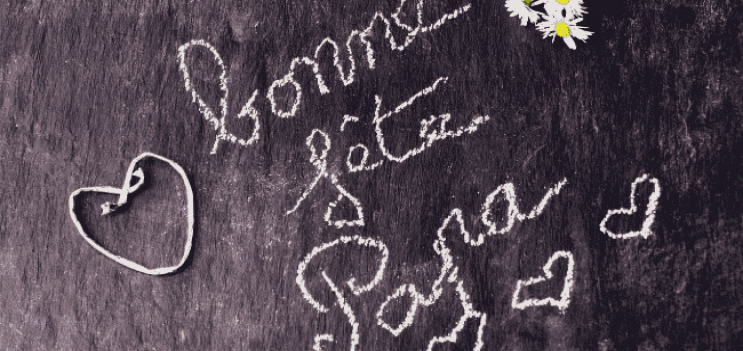 bonne
fête
Papa